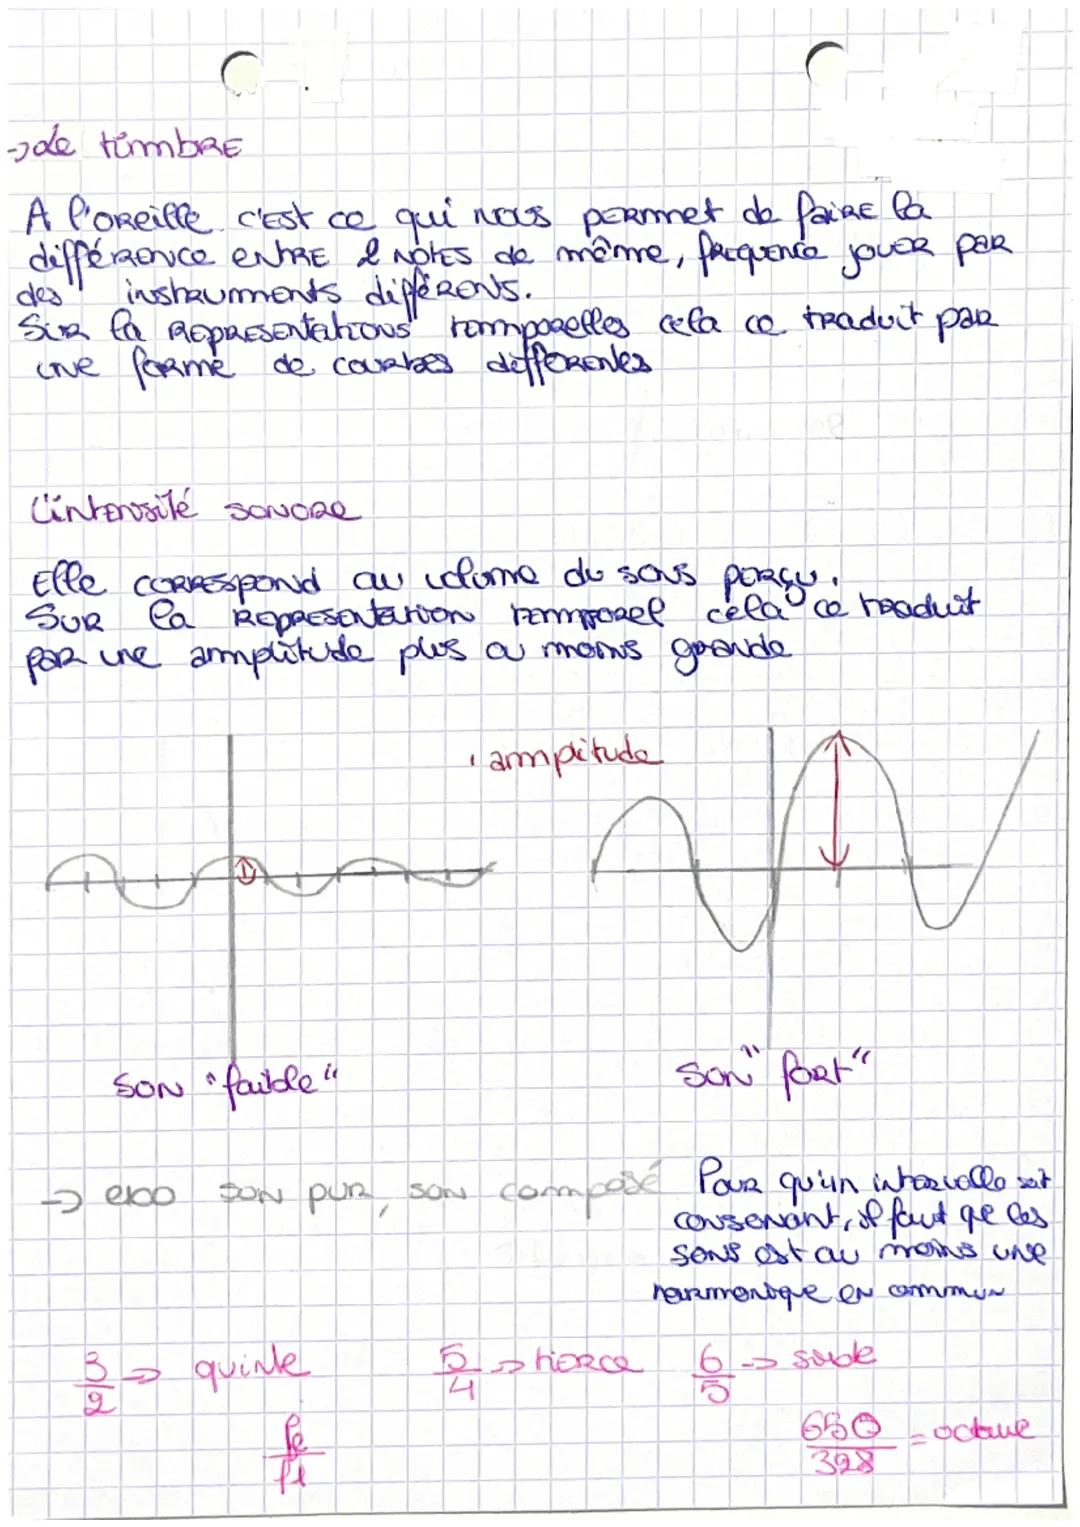 → le timbRE
A l'oReille c'est ce qui nous peRmet de faiRE la
différence entre 2 notes de même, frequence jouer par
des instruments différens.
Sur la Representations temporelles cela ce traduit par
une forme de courbes différentes
L'intensité sonore
Elle correspond au volume du sons perçu.
Sur la Representation temporel cela ce traduit
par une amplitude plus ou moins grande
amplitude
son "faible"
son "fort"
→ exo son pur, son composé
Pour qu'un intervalle soit
consonant, il faut que les
sons est au moins une
harmonique en commun
3/2 → quinte 5/4 → tierce 6/5 →
f2/f1
650/328 = octave